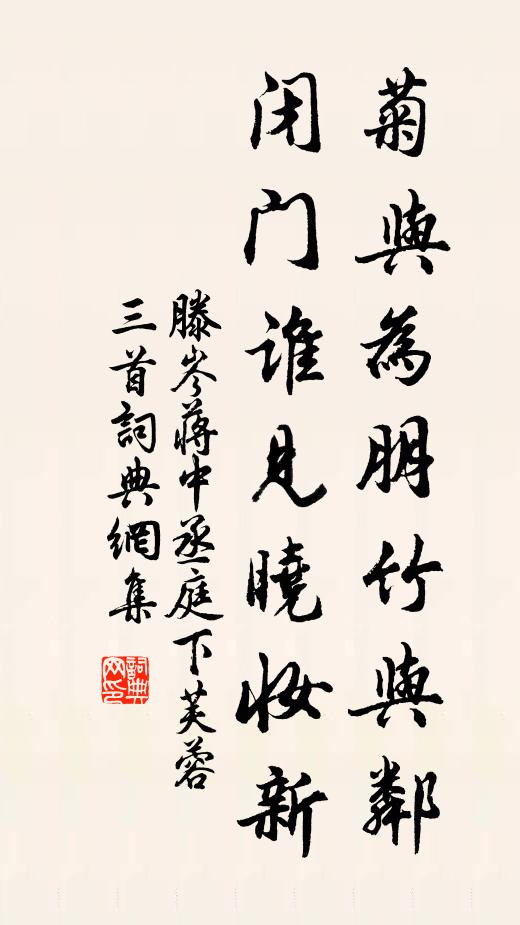 菊與為朋竹與鄰
闭门谁見曉妝新
滕岑蔣中丞庭下芙蓉
三首詞典網集
詞典网印